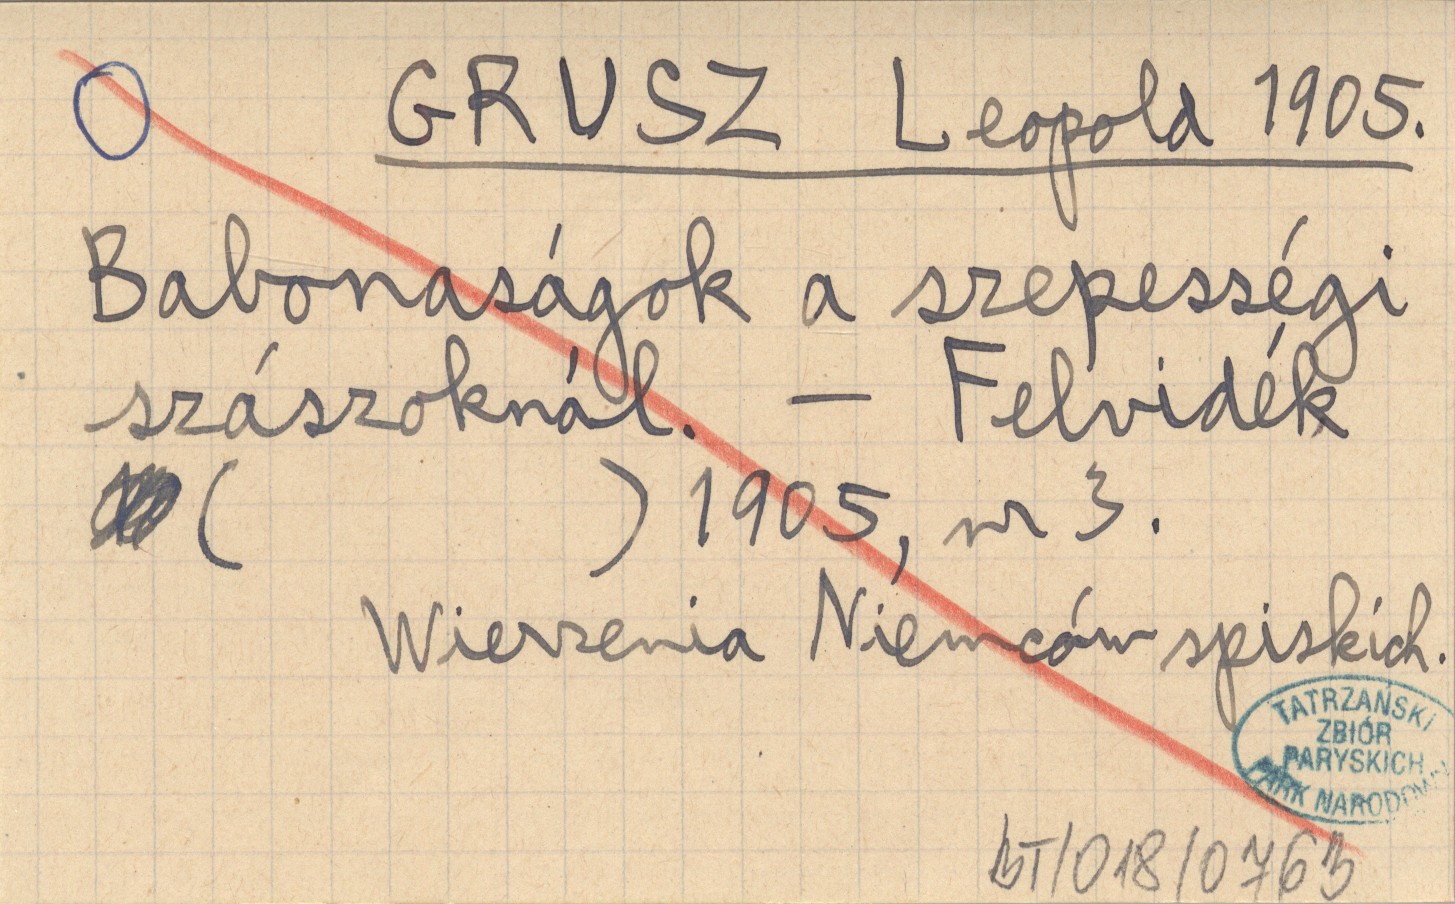 GRUSZ Leopold 1905.
Babonaságok a szepességi
szászoknál. — Felvidék
( ) 1905, nr 3.
Wierzenia Niemców spiskich.
TATRZAŃSKI
ZBIÓR
PARYSKICH
PARK NARODOWY
BT/018/0763